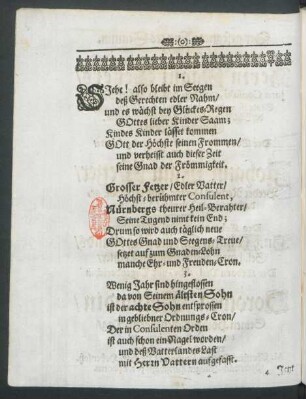 :(o):
1.
Siehe! also bleibt im Seegen
deß Gerechten edler Nahm/
und es wächst bey Glückes-Regen
GOttes lieber Kinder Saam;
Kindes Kinder lässet kommen
GOtt der Höchste seinen Frommen/
und verheisst auch dieser Zeit
seine Gnad der Frömmigkeit.
2.
Grosser Fetzer/ Edler Vatter/
Höchst-berühmter Consulent,
Nürnbergs theurer Heil-Berahter/
Seine Tugend nimt kein End;
Drum so wird auch täglich neue
GOttes Gnad und Seegens-Treue/
setzet auf zum Gnaden-Lohn
manche Ehr- und Freuden-Cron.
3.
Wenig Jahr sind hingeflossen
da von Seinem ältsten Sohn
ist der achte Sohn entsprossen
in gebliebner Ordnungs-Cron/
Der in Consulenten Orden
ist auch schon ein Nagel worden/
und deß Vatterlandes Last
mit Herrn Vattern aufgefasst.